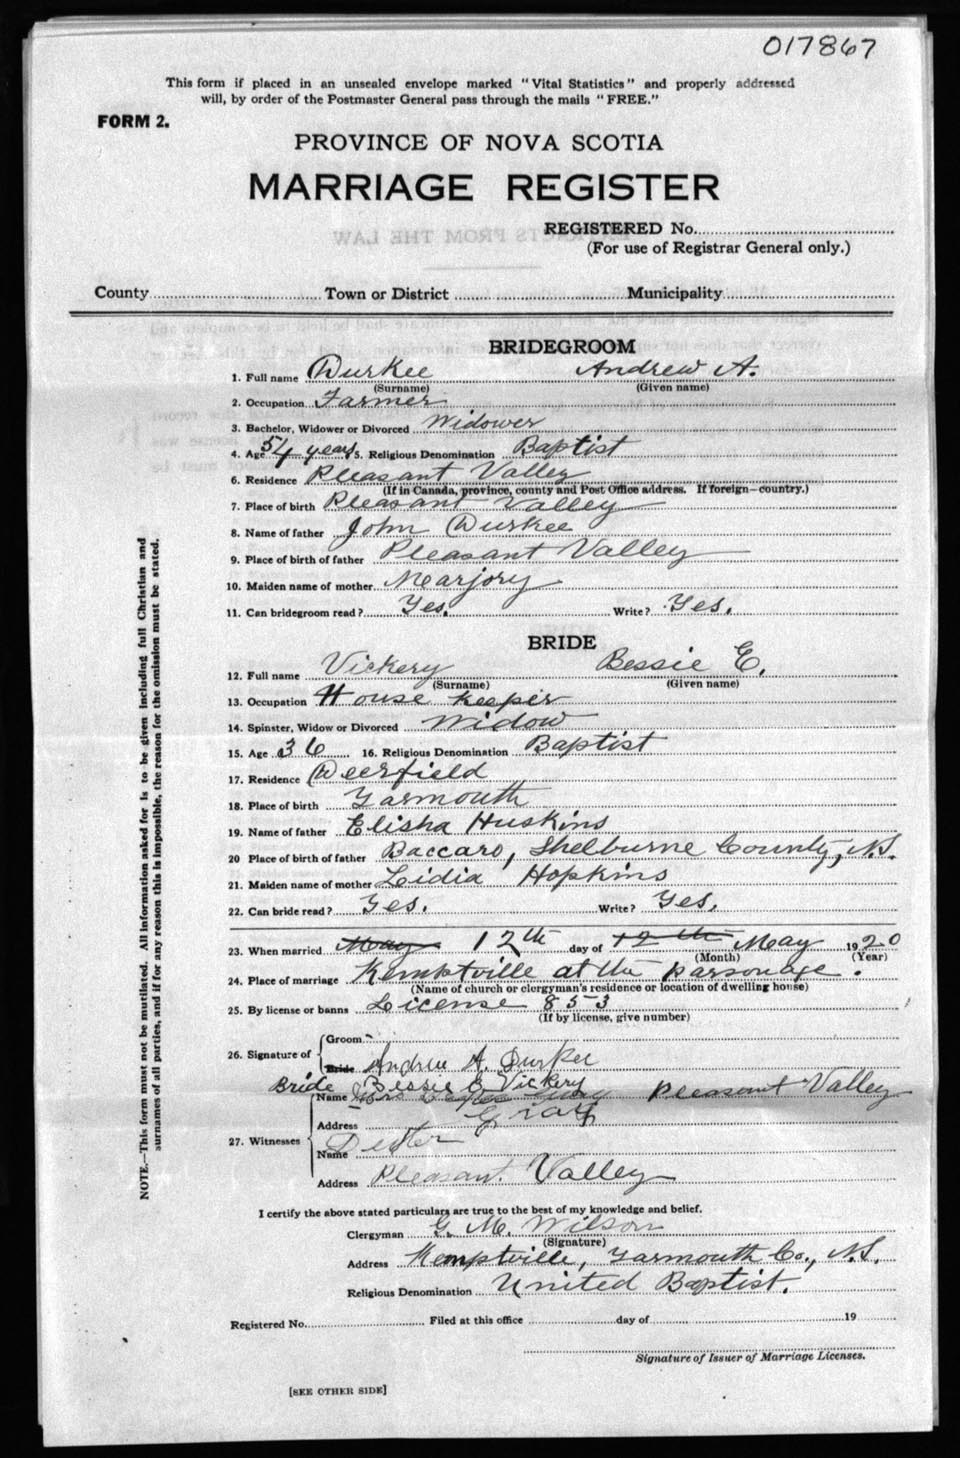 017867
This form if placed in an unsealed envelope marked "Vital Statistics" and properly addressed
will, by order of the Postmaster General pass through the mails "FREE."
FORM 2.
PROVINCE OF NOVA SCOTIA
MARRIAGE REGISTER
REGISTERED No.
(For use of Registrar General only.)
County Town or District Municipality
BRIDEGROOM
1. Full name Durkee Andrew A.
(Surname) (Given name)
2. Occupation Farmer
3. Bachelor, Widower or Divorced Widower
4. Age 54 years 5. Religious Denomination Baptist
6. Residence Pleasant Valley
(If in Canada, province, county and Post Office address. If foreign—country.)
7. Place of birth Pleasant Valley
8. Name of father John Durkee
9. Place of birth of father Pleasant Valley
10. Maiden name of mother Marjory
11. Can bridegroom read? Yes. Write? Yes.
BRIDE
12. Full name Vickery Bessie E.
(Surname) (Given name)
13. Occupation House keeper
14. Spinster, Widow or Divorced Widow
15. Age 36 16. Religious Denomination Baptist
17. Residence Deerfield
18. Place of birth Yarmouth
19. Name of father Elisha Huskins
20 Place of birth of father Baccaro, Shelburne County, N.S.
21. Maiden name of mother Lidia Hopkins
22. Can bride read? Yes. Write? Yes.
23. When married May 12th day of 12th May 1920
(Month) (Year)
24. Place of marriage Kemptville at the parsonage.
(Name of church or clergyman's residence or location of dwelling house)
25. By license or banns License 853
(If by license, give number)
26. Signature of
Groom
Bride Andrew A. Durkee
Bride Bessie E Vickery
27. Witnesses
Name Pleasant Valley
Address Gray
Name
Address Pleasant Valley
I certify the above stated particulars are true to the best of my knowledge and belief.
Clergyman G. M. Wilson
(Signature)
Address Kemptville, Yarmouth Co., N.S.
Religious Denomination United Baptist.
Registered No. Filed at this office day of 19
Signature of Issuer of Marriage Licenses.
[SEE OTHER SIDE]
NOTE.—This form must not be mutilated. All information asked for is to be given including full Christian and
surnames of all parties, and if for any reason this is impossible, the reason for the omission must be stated.